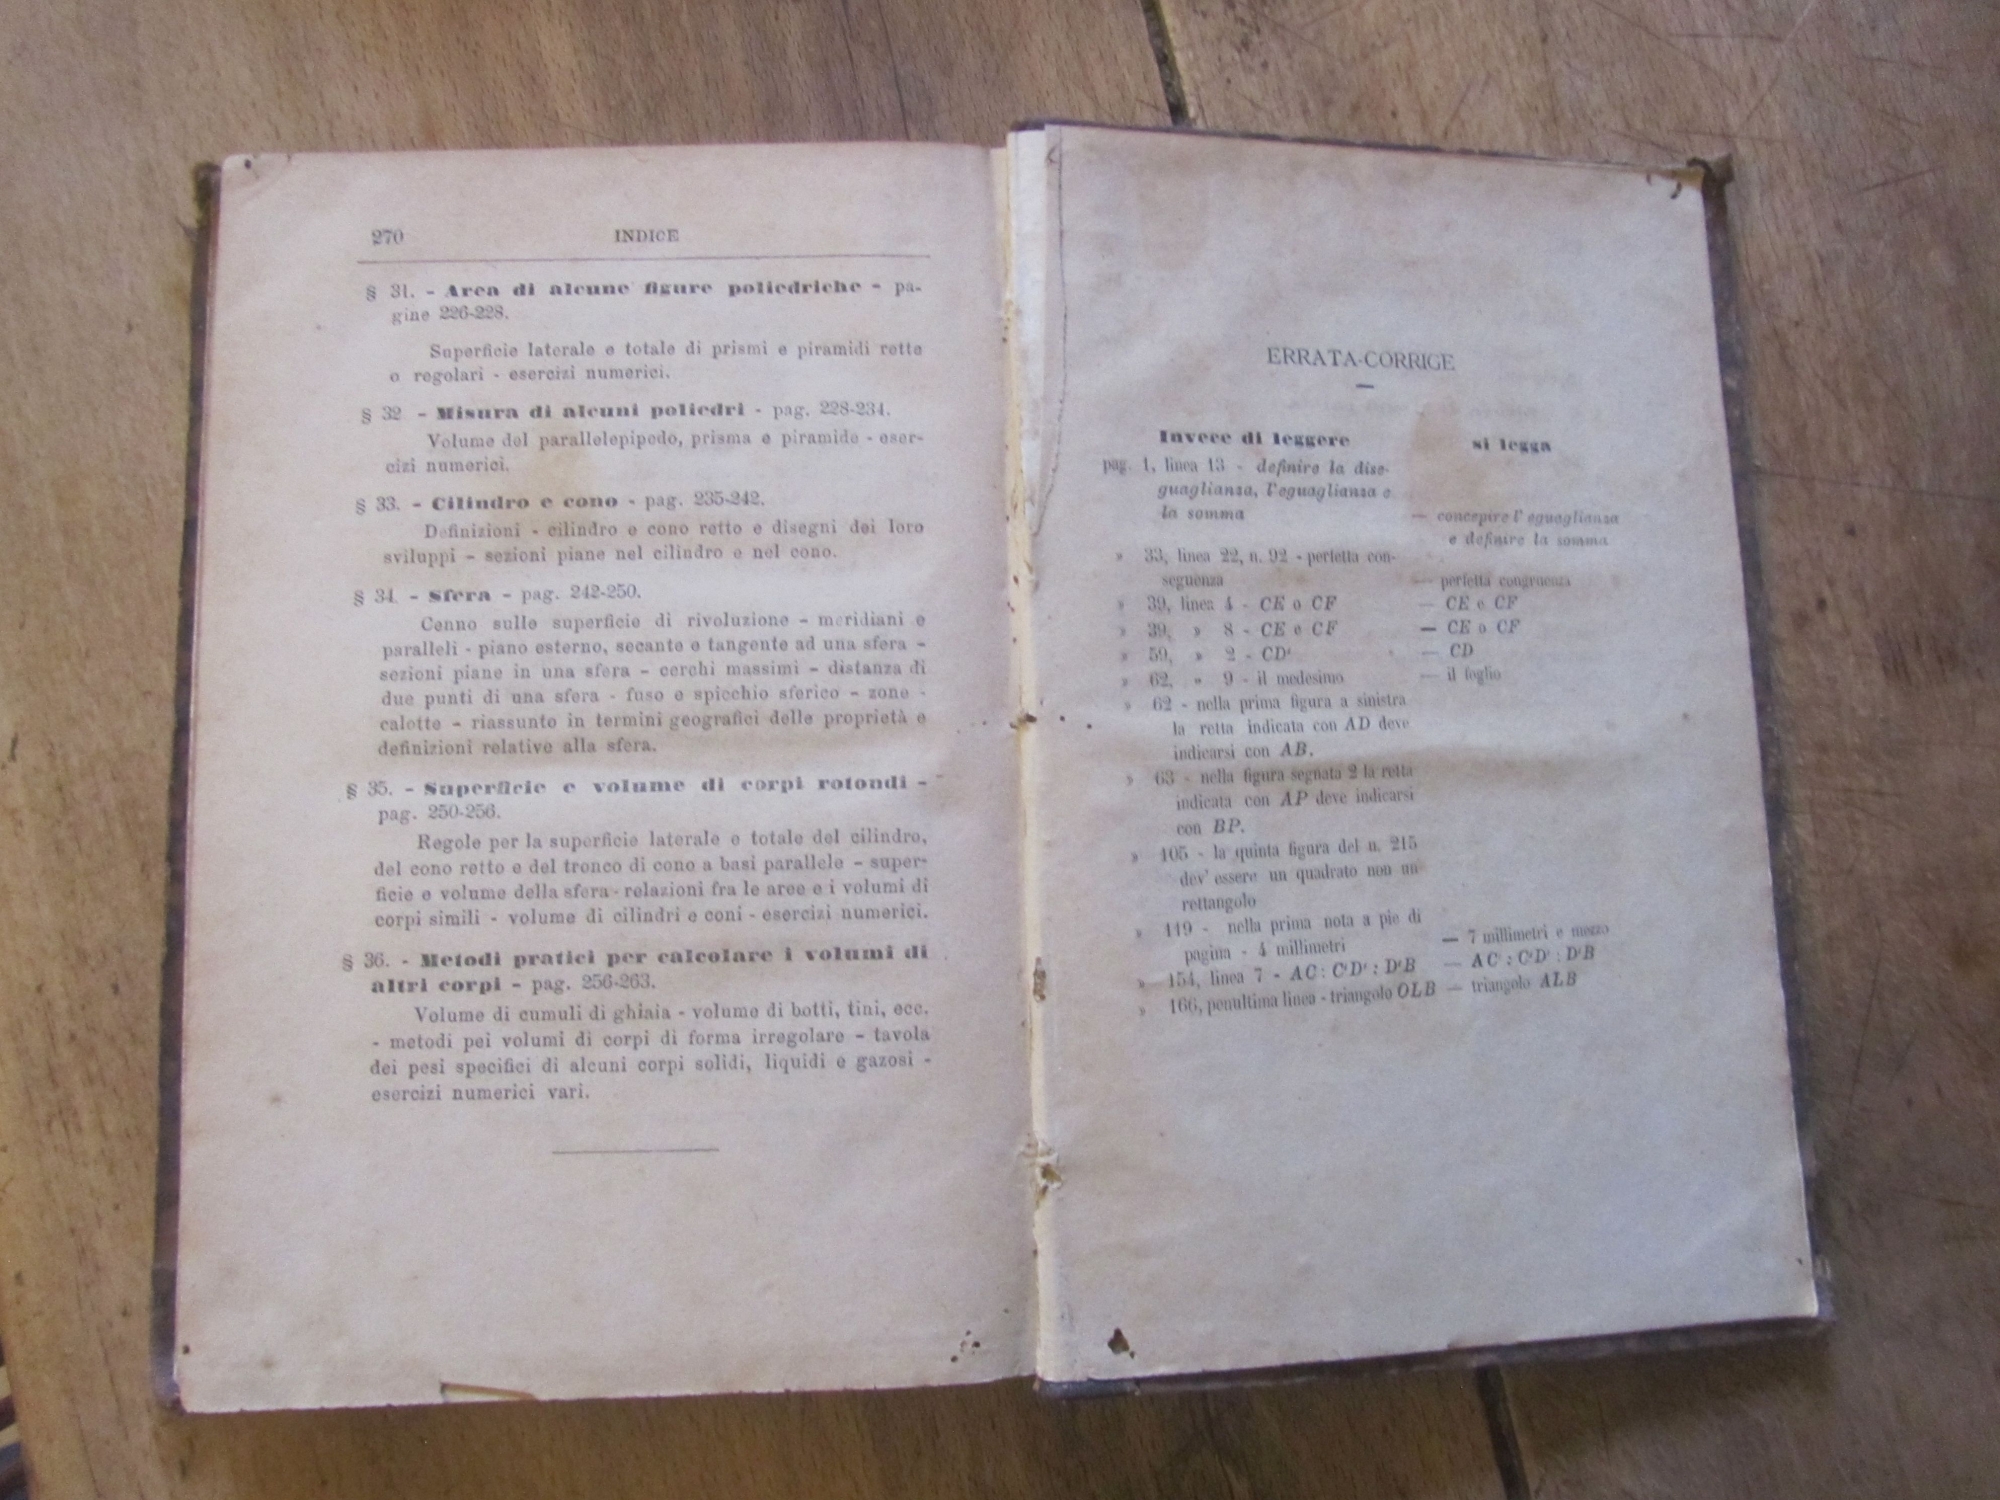 270 INDICE
§ 31. - Area di alcune figure poliedriche - pa-
gine 226-228.
Superficie laterale e totale di prismi e piramidi rette
o regolari - esercizi numerici.
§ 32 - Misura di alcuni poliedri - pag. 228-234.
Volume del parallelepipedo, prisma e piramide - eser-
cizi numerici.
§ 33. - Cilindro e cono - pag. 235-242.
Definizioni - cilindro e cono retto e disegni dei loro
sviluppi - sezioni piane nel cilindro e nel cono.
§ 34 - Sfera - pag. 242-250.
Cenno sulle superficie di rivoluzione - meridiani e
paralleli - piano esterno, secante e tangente ad una sfera -
sezioni piane in una sfera - cerchi massimi - distanza di
due punti di una sfera - fuso e spicchio sferico - zone -
calotte - riassunto in termini geografici delle proprietà e
definizioni relative alla sfera.
§ 35. - Superficie e volume di corpi rotondi -
pag. 250-256.
Regole per la superficie laterale e totale del cilindro,
del cono retto e del tronco di cono a basi parallele - super-
ficie e volume della sfera - relazioni fra le aree e i volumi di
corpi simili - volume di cilindri e coni - esercizi numerici.
§ 36. - Metodi pratici per calcolare i volumi di
altri corpi - pag. 256-263.
Volume di cumuli di ghiaia - volume di botti, tini, ecc.
- metodi pei volumi di corpi di forma irregolare - tavola
dei pesi specifici di alcuni corpi solidi, liquidi e gazosi -
esercizi numerici vari.
ERRATA-CORRIGE
Invece di leggere si legga
pag. 1, linea 13 - definire la dise-
guaglianza, l'eguaglianza e
la somma — concepire l'eguaglianza
e definire la somma
» 33, linea 22, n. 92 - perfetta con-
seguenza — perfetta congruenza
» 39, linea 4 - CE o CF — CE e CF
» 39, » 8 - CE e CF — CE o CF
» 59, » 2 - CD' — CD
» 62, » 9 - il medesimo — il foglio
» 62 - nella prima figura a sinistra
la retta indicata con AD deve
indicarsi con AB.
» 63 - nella figura segnata 2 la retta
indicata con AP deve indicarsi
con BP.
» 105 - la quinta figura del n. 215
dev' essere un quadrato non un
rettangolo
» 119 - nella prima nota a pie di
pagina - 4 millimetri — 7 millimetri e mezzo
» 154, linea 7 - AC : C'D' : D'B — AC : C'D' : D'B
» 166, penultima linea - triangolo OLB — triangolo ALB